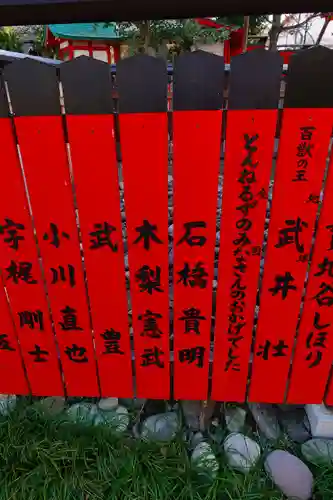 地しほり
百獣の王
武井壮
とんねるずのみなさんのおかげでした
石橋貴明
木梨憲武
武豊
小川直也
宇梶剛士